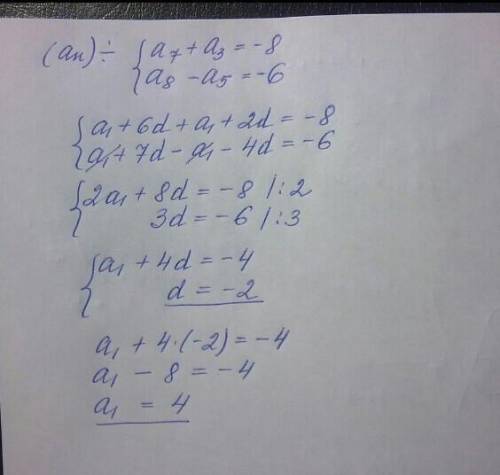 (aₙ) ÷ { a₇ + a₃ = -8
a₈ - a₅ = -6
{ a₁ + 6d + a₁ + 2d = -8
a₁ + 7d - a₁ - 4d = -6
{ 2a₁ + 8d = -8 /:2
3d = -6 /:3
{ a₁ + 4d = -4
d = -2
a₁ + 4·(-2) = -4
a₁ - 8 = -4
a₁ = 4